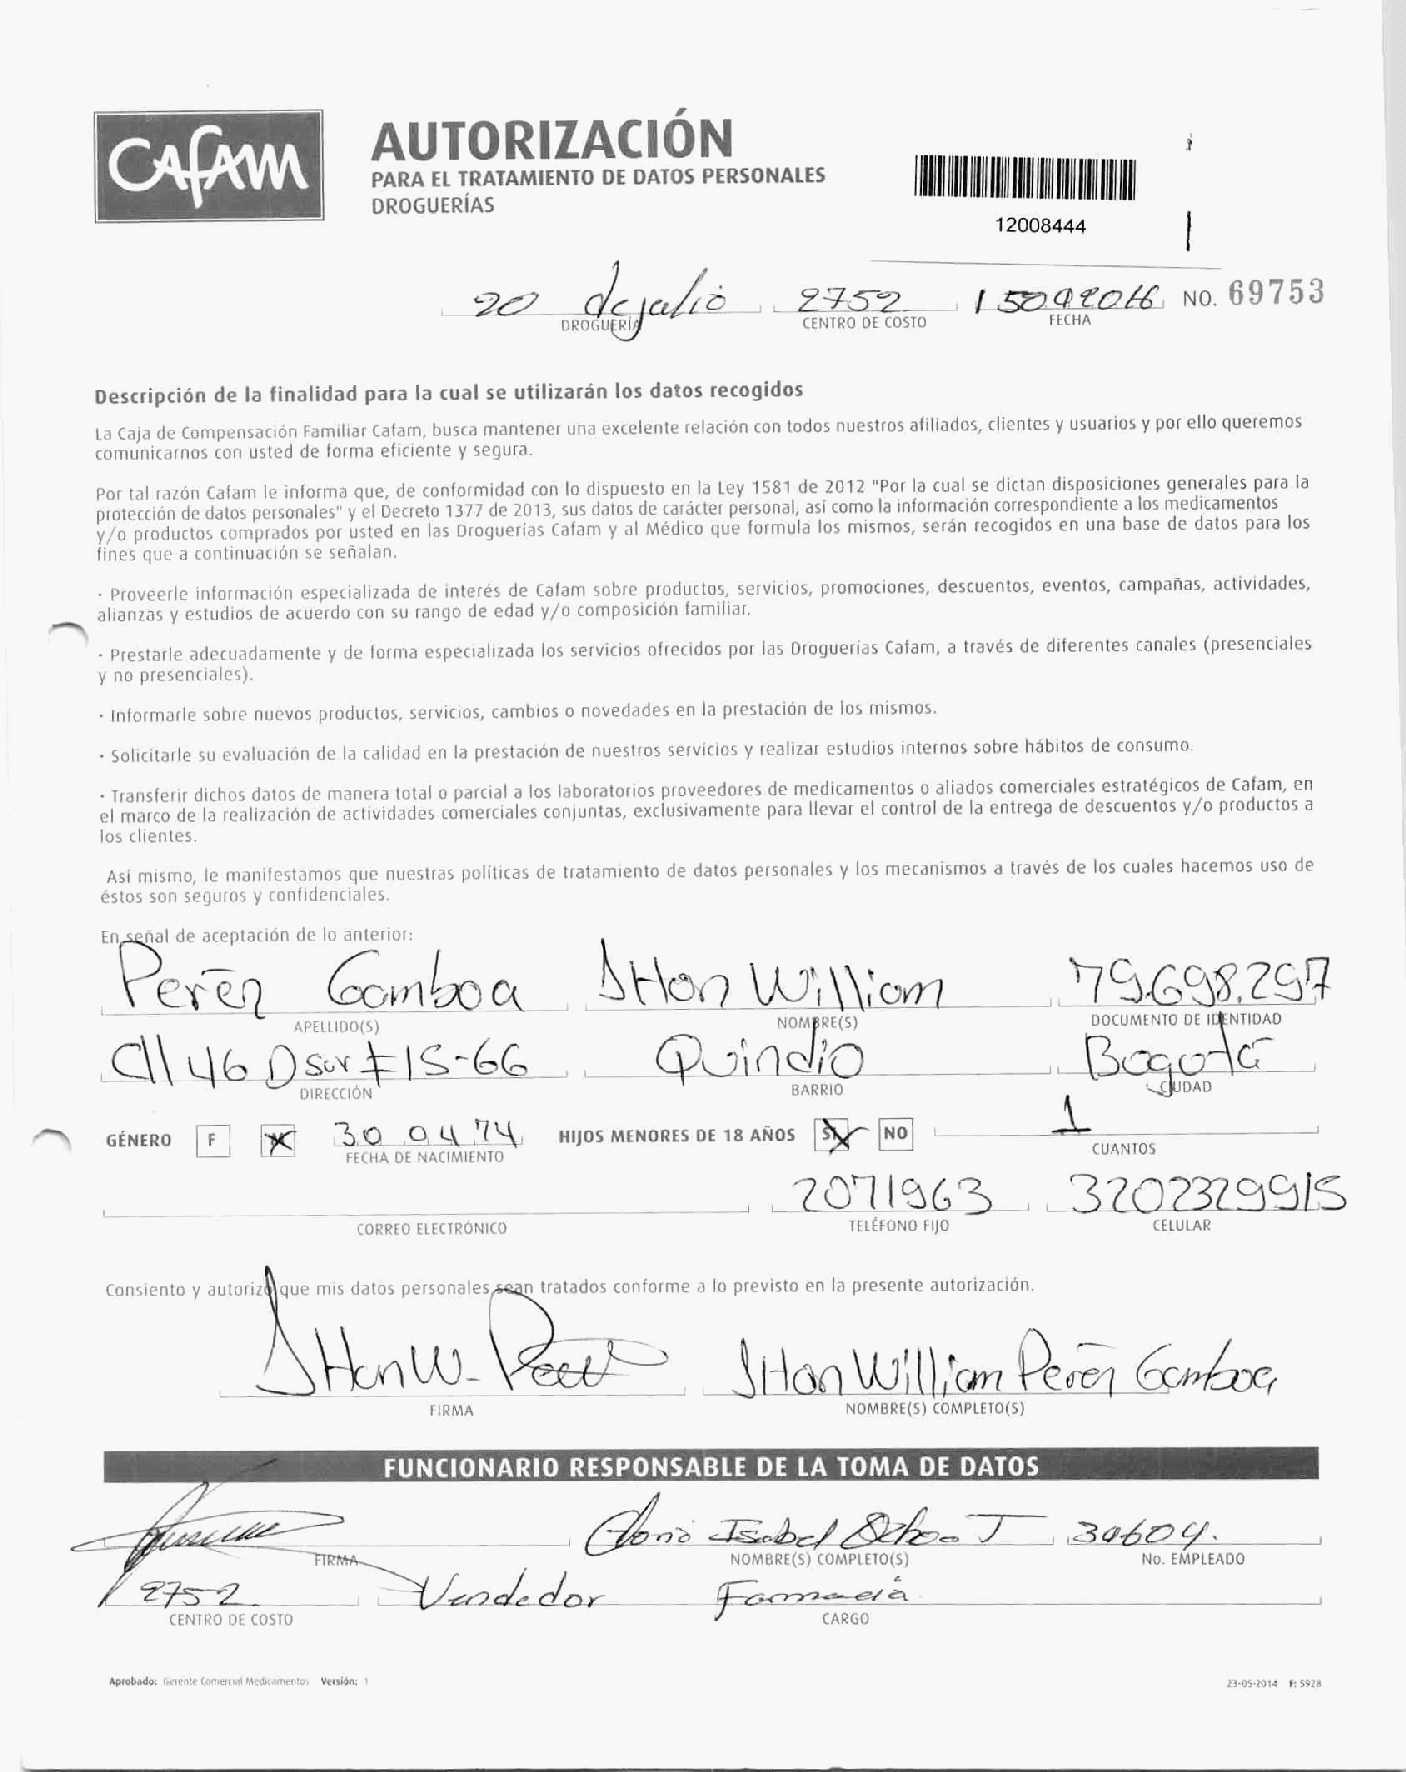 CAFAM
AUTORIZACIÓN
PARA EL TRATAMIENTO DE DATOS PERSONALES
DROGUERÍAS
12008444
20 de julio 2752 15092016 NO. 69753
DROGUERÍA CENTRO DE COSTO FECHA
Descripción de la finalidad para la cual se utilizarán los datos recogidos
La Caja de Compensación Familiar Cafam, busca mantener una excelente relación con todos nuestros afiliados, clientes y usuarios y por ello queremos
comunicarnos con usted de forma eficiente y segura.
Por tal razón Cafam le informa que, de conformidad con lo dispuesto en la Ley 1581 de 2012 "Por la cual se dictan disposiciones generales para la
protección de datos personales" y el Decreto 1377 de 2013, sus datos de carácter personal, así como la información correspondiente a los medicamentos
y/o productos comprados por usted en las Droguerías Cafam y al Médico que formula los mismos, serán recogidos en una base de datos para los
fines que a continuación se señalan.
· Proveerle información especializada de interés de Cafam sobre productos, servicios, promociones, descuentos, eventos, campañas, actividades,
alianzas y estudios de acuerdo con su rango de edad y/o composición familiar.
· Prestarle adecuadamente y de forma especializada los servicios ofrecidos por las Droguerías Cafam, a través de diferentes canales (presenciales
y no presenciales).
· Informarle sobre nuevos productos, servicios, cambios o novedades en la prestación de los mismos.
· Solicitarle su evaluación de la calidad en la prestación de nuestros servicios y realizar estudios internos sobre hábitos de consumo.
· Transferir dichos datos de manera total o parcial a los laboratorios proveedores de medicamentos o aliados comerciales estratégicos de Cafam, en
el marco de la realización de actividades comerciales conjuntas, exclusivamente para llevar el control de la entrega de descuentos y/o productos a
los clientes.
Así mismo, le manifestamos que nuestras políticas de tratamiento de datos personales y los mecanismos a través de los cuales hacemos uso de
éstos son seguros y confidenciales.
En señal de aceptación de lo anterior:
Perez Gamboa JHon William 79.698.297
APELLIDO(S) NOMBRE(S) DOCUMENTO DE IDENTIDAD
Cll 46 D sur # 15-66 Quindio Bogota
DIRECCIÓN BARRIO CIUDAD
GÉNERO F 30 04 74 HIJOS MENORES DE 18 AÑOS SI NO 1
FECHA DE NACIMIENTO CUANTOS
2071963 3202329915
CORREO ELECTRÓNICO TELÉFONO FIJO CELULAR
Consiento y autorizo que mis datos personales sean tratados conforme a lo previsto en la presente autorización.
JHon W. JHon William Perez Gamboa
FIRMA NOMBRE(S) COMPLETO(S)
FUNCIONARIO RESPONSABLE DE LA TOMA DE DATOS
Isabel Ochoa J 30604.
FIRMA NOMBRE(S) COMPLETO(S) No. EMPLEADO
2752 Vendedor Farmacia
CENTRO DE COSTO CARGO
Aprobado: Gerente Comercial Medicamentos Versión: 1 23-05-2014 F: 5928